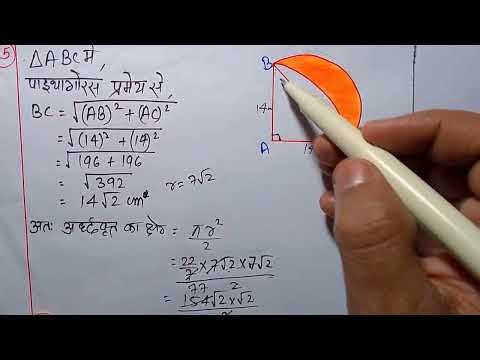 5
ΔABC में,
पाइथागोरस प्रमेय से,
BC = √(AB)² + (AC)²
= √(14)² + (14)²
= √196 + 196
= √392
= 14√2 cm r = 7√2
अतः अर्द्धवृत्त का क्षे० = πr²/2
= 22/7 × 7√2 × 7√2 / 2
77
= 154√2 × √2
B
14
A
1